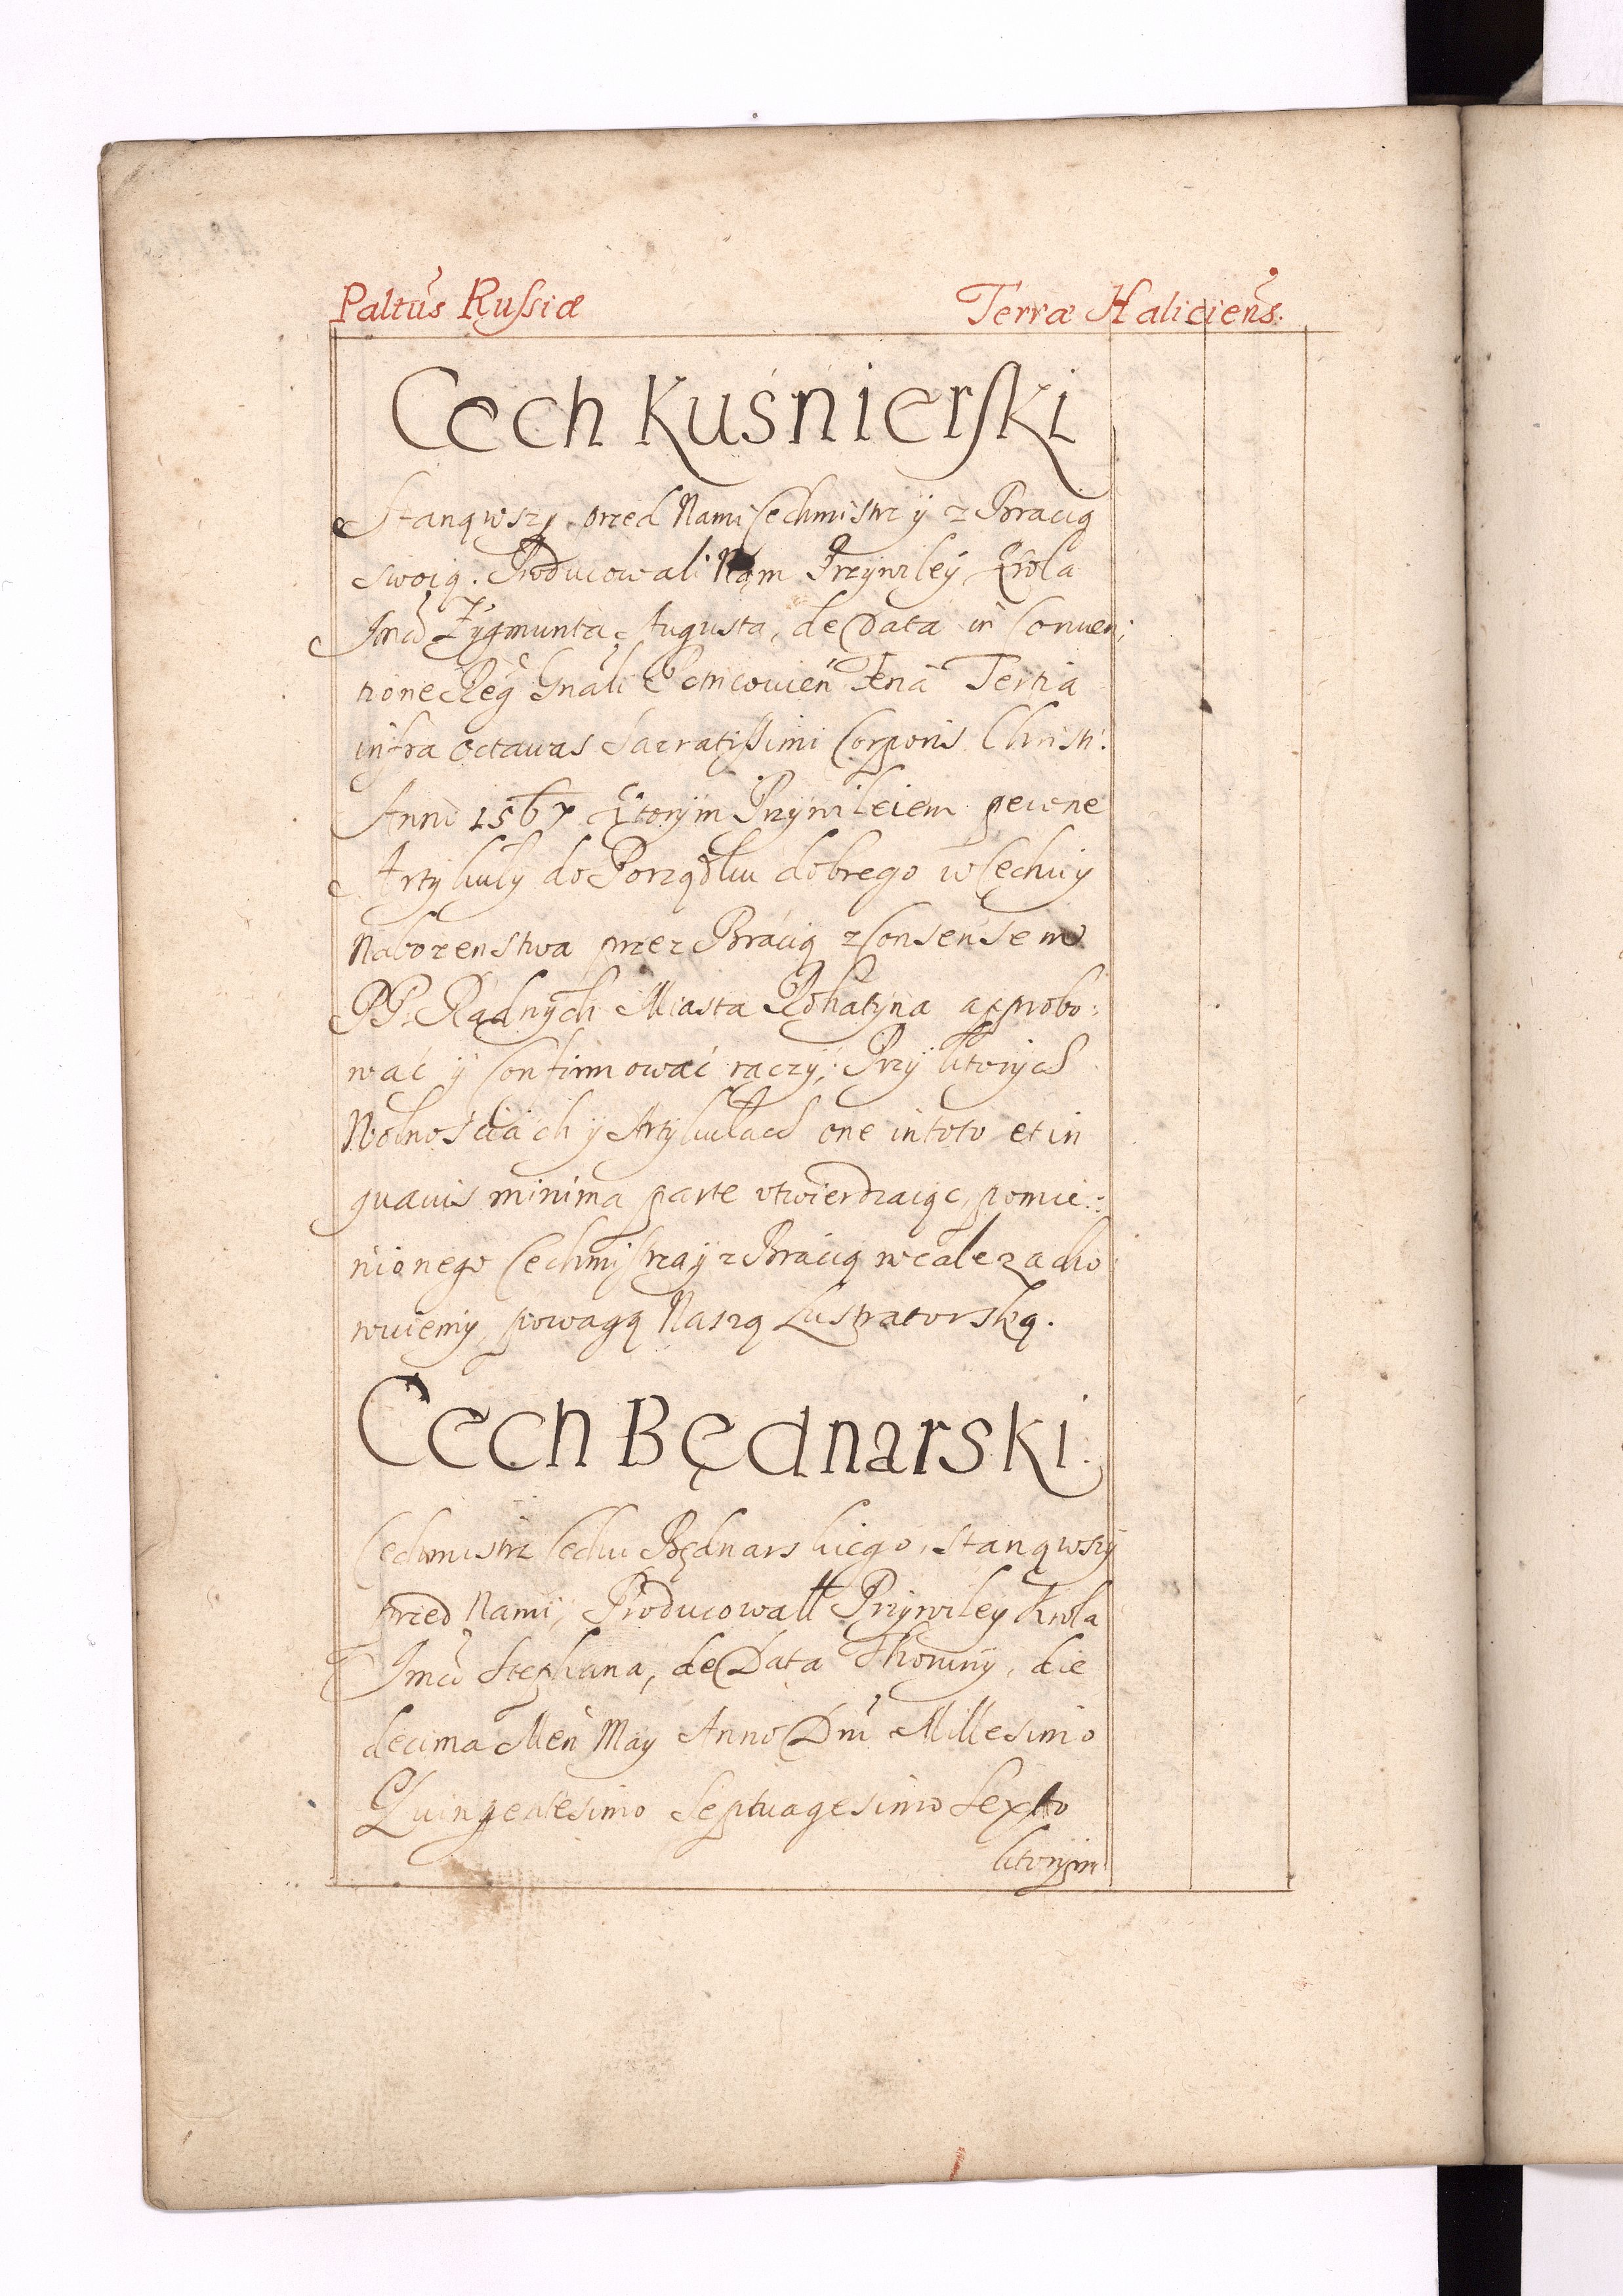 Paltus Russiæ Terræ Haliciens.
Cech Kuśnierski
Stanąwszy przed Nami Cechmistrz y z Bracią
swoią. Producowali Nam Przywiley Krola
Imci Zygmunta Augusta, de Data in Conuen:
tione Reg Gnali Petricouien Feria Tertia
infra Octauas Sacratissimi Corporis Christi.
Anno 1567 Ktorym Przywileiem pewne
Artykuły do Porządku dobrego w Cechu y
Nabozenstwa przez Bracią z Consensem
PP. Radnych Miasta Rohatyna approbo:
wać y Confirmować raczył, Przy ktorych
Wolnościach y Artykułach one in toto et in
quauis minima parte vtwierdzaiąc, pomie:
nionego Cechmistrza y z Bracią wcale zacho
wuiemy, powagą Naszą Lustratorską.
Cech Będnarski.
Cechmistrz Cechu Będnarskiego, stanąwszy
przed Nami, Producowałł Przywiley Krola
Imci Stephana, de Data Thoruny, die
decima Men May Anno Dni Millesimo
Quingentesimo Septuagesimo Sexto
ktorym